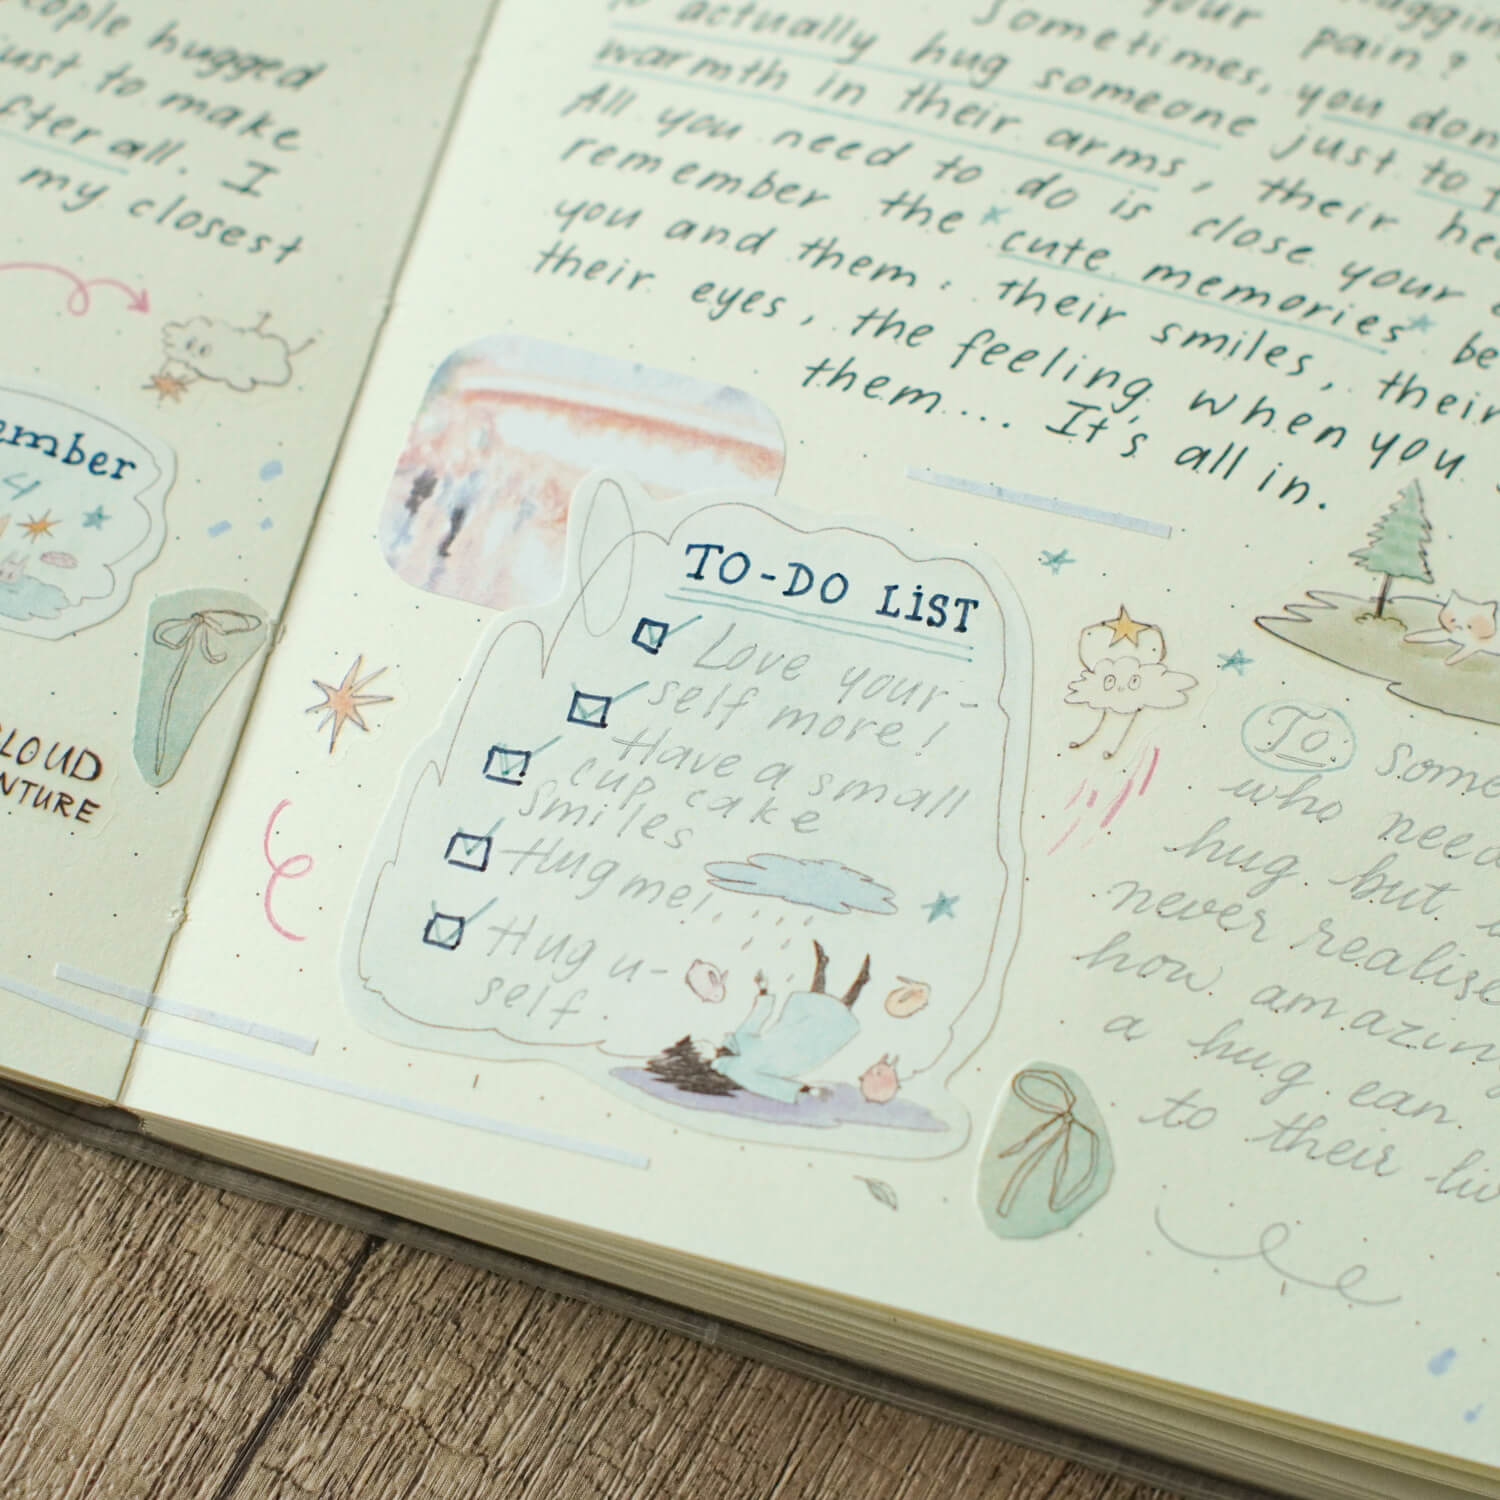 people hugged
just to make
after all. I
my closest
ember
4
CLOUD
NTURE
your pain?
Sometimes, you don
to actually hug someone just to f
warmth in their arms, their hea
All you need to do is close your
remember the cute memories be
you and them. their smiles, their
their eyes, the feeling when you
them.... It's all in.
TO-DO LiST
Love your-
self more!
Have a small
cup cake
smiles
Hug me!
Hug u-
self.
To some
who need
hug but
never realise
how amazing
a hug can
to their liv